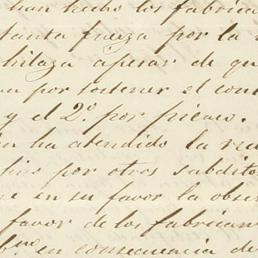 han hecho los fabrica
tanta fuerza por la
hilaza apesar de qu
por sostener el con
y el 2º. por piezas.
ha atendido la re
hizo por otros subdito
en su favor la obser
favor de los fabrican
en consecuencia de